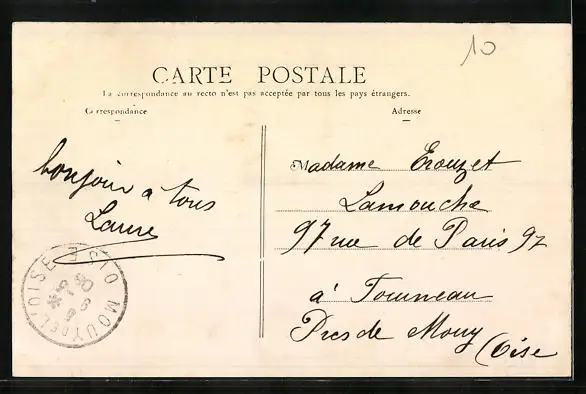 10
CARTE POSTALE
La correspondance au recto n'est pas acceptée par tous les pays étrangers.
Correspondance
Adresse
bonjour a tous
Laure
Madame Erouzet
Lamouche
97 rue de Paris 97
à Fourneau
Pres de Mouy
(Oise
MOUY DE L'OISE OISE